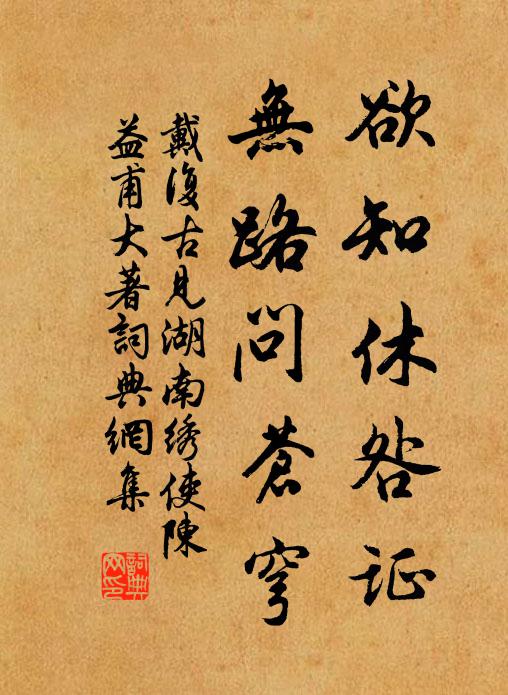 欲知休咎证
無路問蒼穹
戴復古見湖南绣使陳
益甫大著詞典網集
詞典
网印